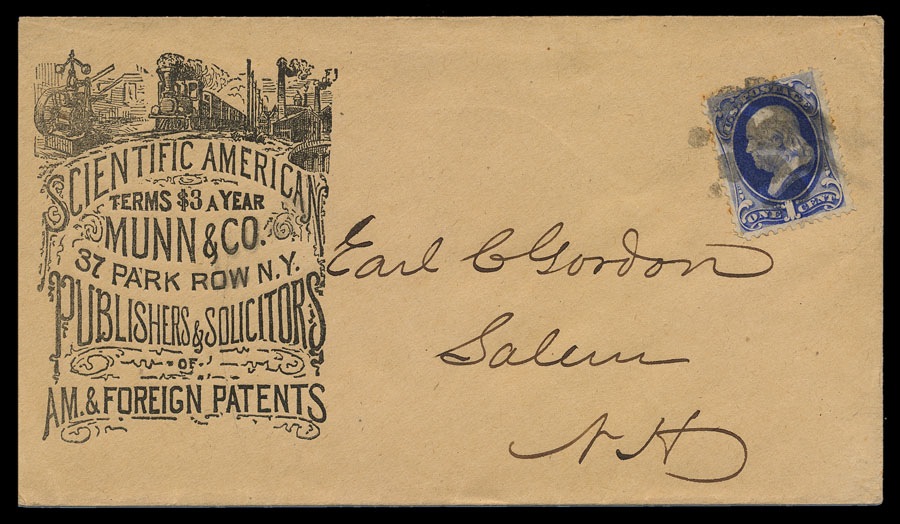 SCIENTIFIC AMERICAN
TERMS $3 A YEAR
MUNN & CO.
37 PARK ROW N.Y.
PUBLISHERS & SOLICITORS
OF
AM. & FOREIGN PATENTS
U.S. POSTAGE
ONE 1 CENT
Earl C Gordon
Salem
N H